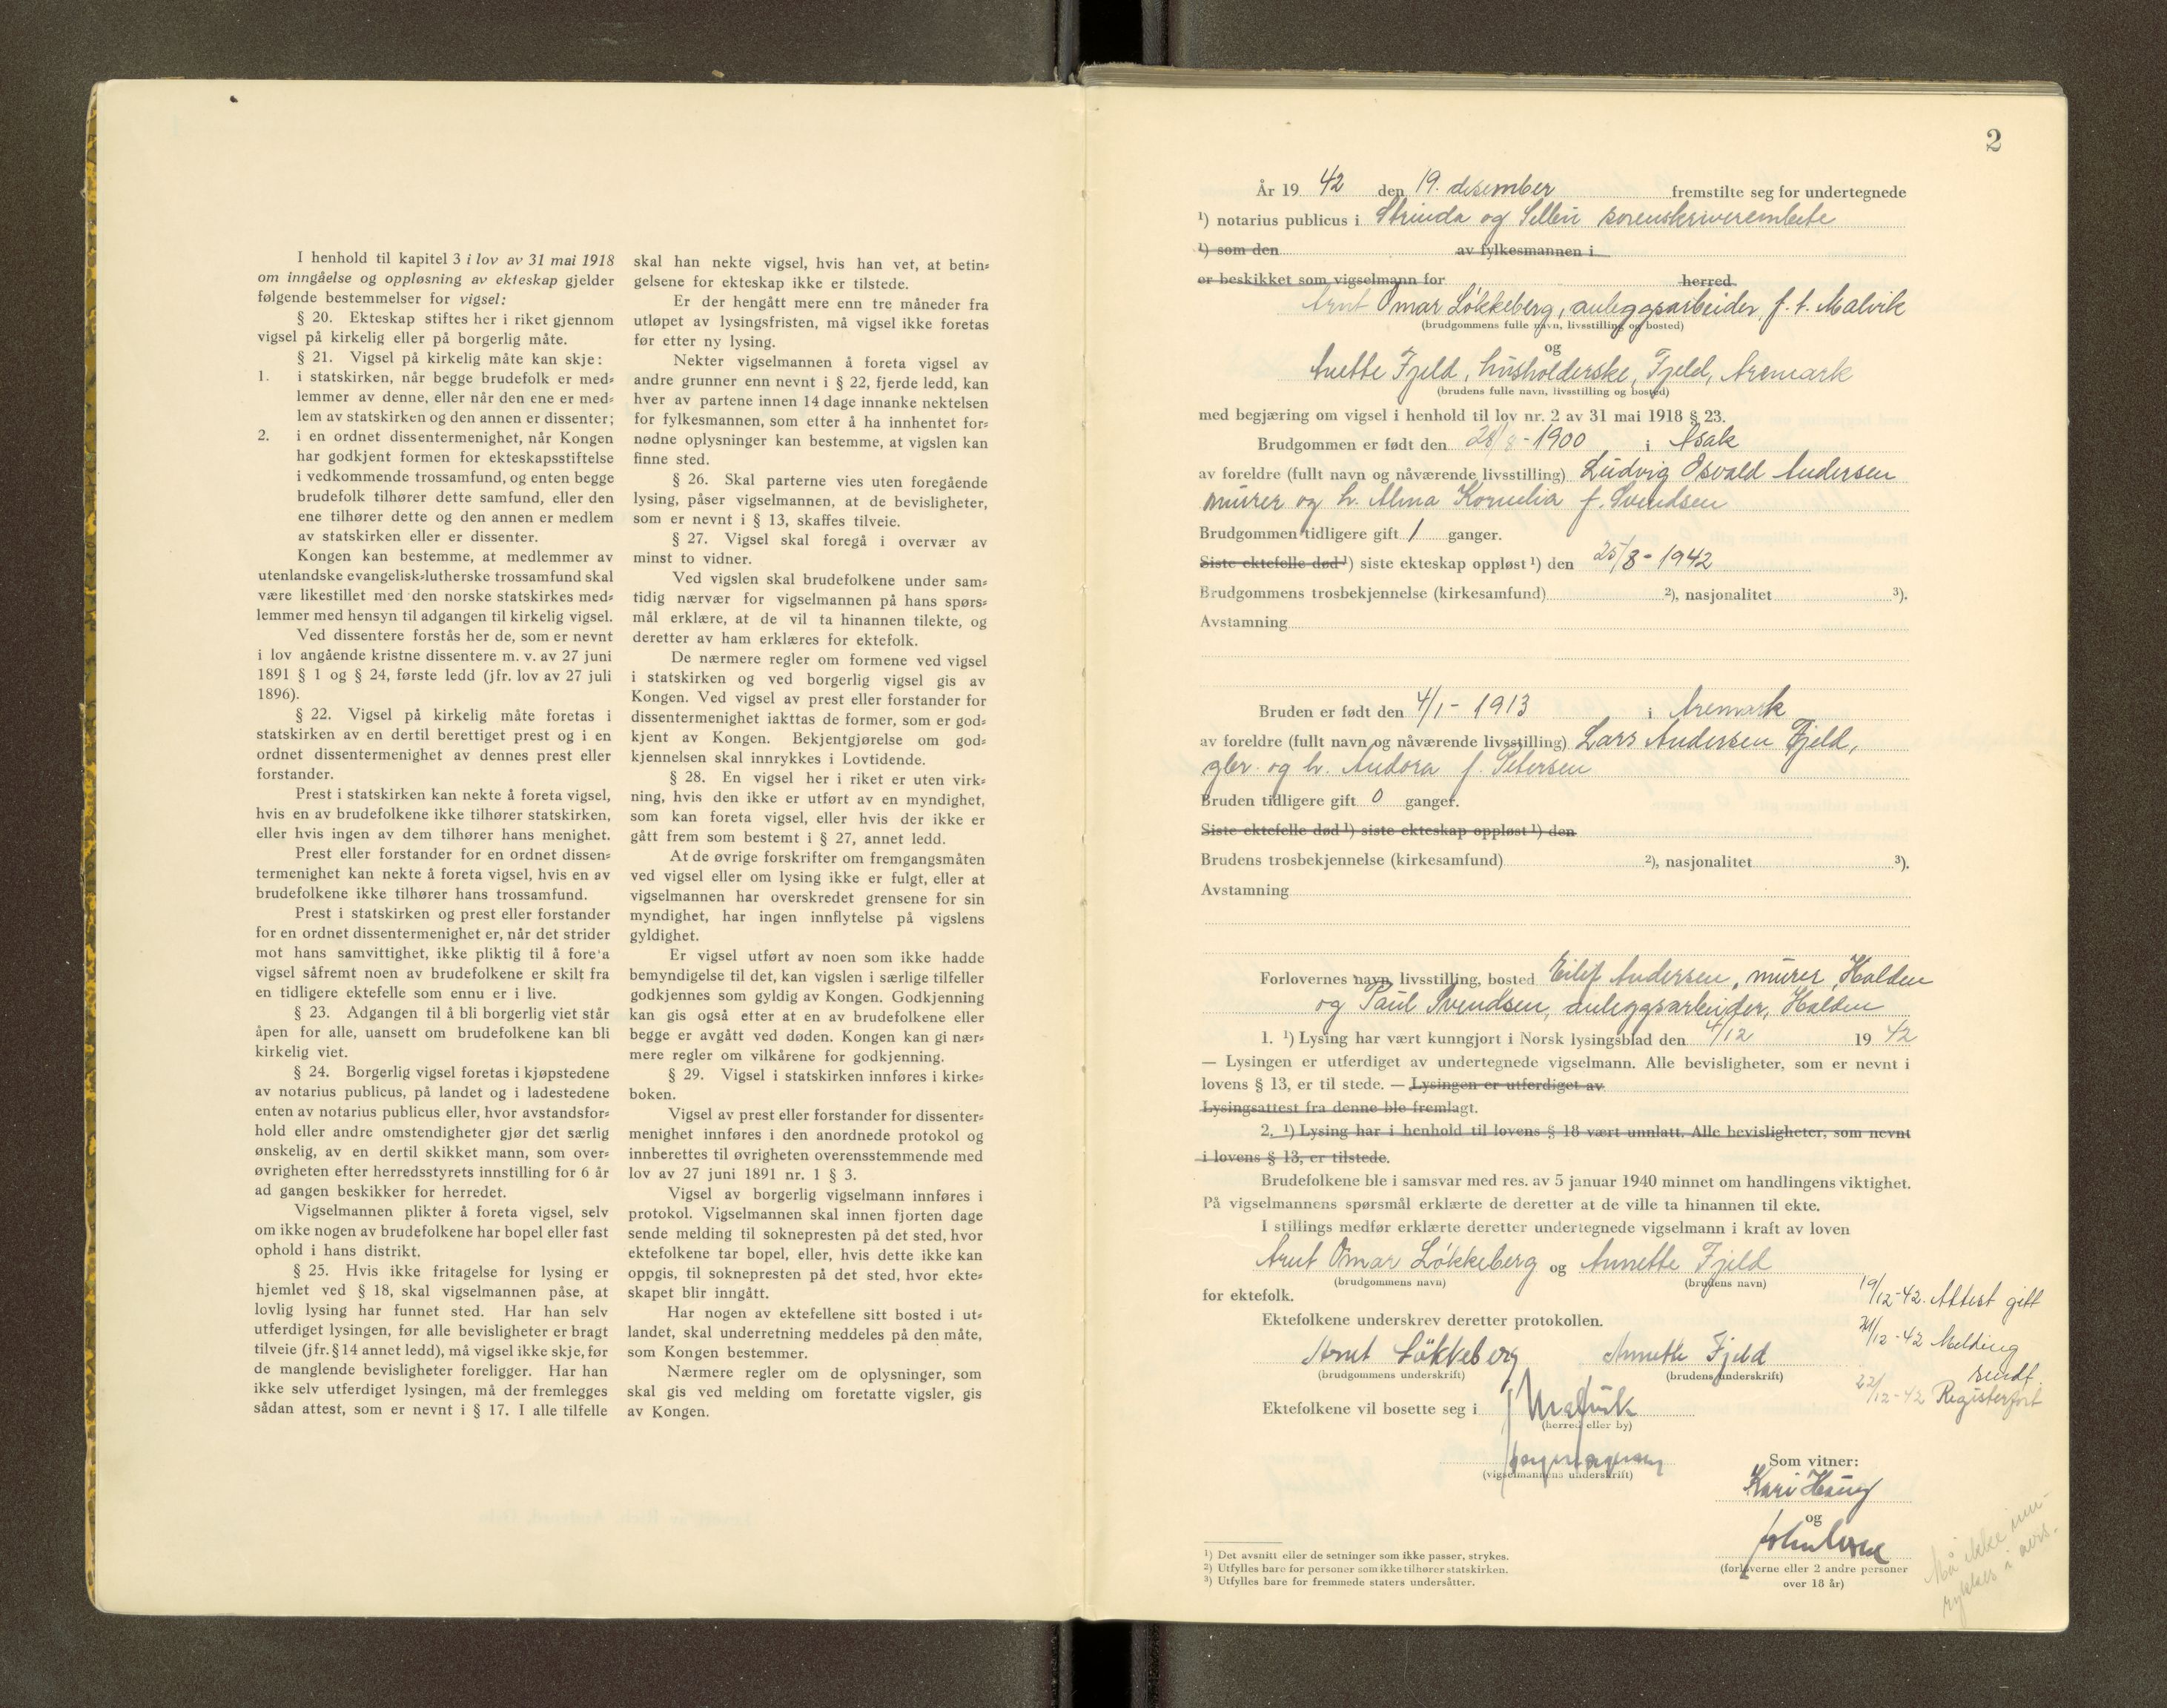 I henhold til kapitel 3 i lov av 31 mai 1918
om inngåelse og oppløsning av ekteskap gjelder
følgende bestemmelser for vigsel:
§ 20. Ekteskap stiftes her i riket gjennom
vigsel på kirkelig eller på borgerlig måte.
§ 21. Vigsel på kirkelig måte kan skje:
1. i statskirken, når begge brudefolk er med=
lemmer av denne, eller når den ene er med=
lem av statskirken og den annen er dissenter;
2. i en ordnet dissentermenighet, når Kongen
har godkjent formen for ekteskapsstiftelse
i vedkommende trossamfund, og enten begge
brudefolk tilhører dette samfund, eller den
ene tilhører dette og den annen er medlem
av statskirken eller er dissenter.
Kongen kan bestemme, at medlemmer av
utenlandske evangelisk=lutherske trossamfund skal
være likestillet med den norske statskirkes med=
lemmer med hensyn til adgangen til kirkelig vigsel.
Ved dissentere forstås her de, som er nevnt
i lov angående kristne dissentere m. v. av 27 juni
1891 § 1 og § 24, første ledd (jfr. lov av 27 juli
1896).
§ 22. Vigsel på kirkelig måte foretas i
statskirken av en dertil berettiget prest og i en
ordnet dissentermenighet av dennes prest eller
forstander.
Prest i statskirken kan nekte å foreta vigsel,
hvis en av brudefolkene ikke tilhører statskirken,
eller hvis ingen av dem tilhører hans menighet.
Prest eller forstander for en ordnet dissen=
termenighet kan nekte å foreta vigsel, hvis en av
brudefolkene ikke tilhører hans trossamfund.
Prest i statskirken og prest eller forstander
for en ordnet dissentermenighet er, når det strider
mot hans samvittighet, ikke pliktig til å fore'a
vigsel såfremt noen av brudefolkene er skilt fra
en tidligere ektefelle som ennu er i live.
§ 23. Adgangen til å bli borgerlig viet står
åpen for alle, uansett om brudefolkene kan bli
kirkelig viet.
§ 24. Borgerlig vigsel foretas i kjøpstedene
av notarius publicus, på landet og i ladestedene
enten av notarius publicus eller, hvor avstandsfor=
hold eller andre omstendigheter gjør det særlig
ønskelig, av en dertil skikket mann, som over=
øvrigheten efter herredsstyrets innstilling for 6 år
ad gangen beskikker for herredet.
Vigselmannen plikter å foreta vigsel, selv
om ikke nogen av brudefolkene har bopel eller fast
ophold i hans distrikt.
§ 25. Hvis ikke fritagelse for lysing er
hjemlet ved § 18, skal vigselmannen påse, at
lovlig lysing har funnet sted. Har han selv
utferdiget lysingen, før alle bevisligheter er bragt
tilveie (jfr. § 14 annet ledd), må vigsel ikke skje, før
de manglende bevisligheter foreligger. Har han
ikke selv utferdiget lysingen, må der fremlegges
sådan attest, som er nevnt i § 17. I alle tilfelle
skal han nekte vigsel, hvis han vet, at betin=
gelsene for ekteskap ikke er tilstede.
Er der hengått mere enn tre måneder fra
utløpet av lysingsfristen, må vigsel ikke foretas
før etter ny lysing.
Nekter vigselmannen å foreta vigsel av
andre grunner enn nevnt i § 22, fjerde ledd, kan
hver av partene innen 14 dage innanke nektelsen
for fylkesmannen, som etter å ha innhentet for=
nødne oplysninger kan bestemme, at vigslen kan
finne sted.
§ 26. Skal parterne vies uten foregående
lysing, påser vigselmannen, at de bevisligheter,
som er nevnt i § 13, skaffes tilveie.
§ 27. Vigsel skal foregå i overvær av
minst to vidner.
Ved vigslen skal brudefolkene under sam=
tidig nærvær for vigselmannen på hans spørs=
mål erklære, at de vil ta hinannen tilekte, og
deretter av ham erklæres for ektefolk.
De nærmere regler om formene ved vigsel
i statskirken og ved borgerlig vigsel gis av
Kongen. Ved vigsel av prest eller forstander for
dissentermenighet iakttas de former, som er god=
kjent av Kongen. Bekjentgjørelse om god=
kjennelsen skal innrykkes i Lovtidende.
§ 28. En vigsel her i riket er uten virk=
ning, hvis den ikke er utført av en myndighet,
som kan foreta vigsel, eller hvis der ikke er
gått frem som bestemt i § 27, annet ledd.
At de øvrige forskrifter om fremgangsmåten
ved vigsel eller om lysing ikke er fulgt, eller at
vigselmannen har overskredet grensene for sin
myndighet, har ingen innflytelse på vigslens
gyldighet.
Er vigsel utført av noen som ikke hadde
bemyndigelse til det, kan vigslen i særlige tilfeller
godkjennes som gyldig av Kongen. Godkjenning
kan gis også etter at en av brudefolkene eller
begge er avgått ved døden. Kongen kan gi nær=
mere regler om vilkårene for godkjenning.
§ 29. Vigsel i statskirken innføres i kirke=
boken.
Vigsel av prest eller forstander for dissenter=
menighet innføres i den anordnede protokol og
innberettes til øvrigheten overensstemmende med
lov av 27 juni 1891 nr. 1 § 3.
Vigsel av borgerlig vigselmann innføres i
protokol. Vigselmannen skal innen fjorten dage
sende melding til soknepresten på det sted, hvor
ektefolkene tar bopel, eller, hvis dette ikke kan
oppgis, til soknepresten på det sted, hvor ekte=
skapet blir inngått.
Har nogen av ektefellene sitt bosted i ut=
landet, skal underretning meddeles på den måte,
som Kongen bestemmer.
Nærmere regler om de oplysninger, som
skal gis ved melding om foretatte vigsler, gis
av Kongen.
2
År 19 42 den 19. desember fremstilte seg for undertegnede
¹) notarius publicus i Strinda og Selbu sorenskriverembete
¹) som den av fylkesmannen i
er beskikket som vigselmann for herred.
Arnt Omar Løkkeberg, anleggsarbeider, f. t. Malvik
(brudgommens fulle navn, livsstilling og bosted)
og
Anette Fjeld, husholderske, Fjeld, Aremark
(brudens fulle navn, livsstilling og bosted)
med begjæring om vigsel i henhold til lov nr. 2 av 31 mai 1918 § 23.
Brudgommen er født den 28/8 - 1900 i Asak
av foreldre (fullt navn og nåværende livsstilling) Ludvig Osvald Andersen
murer og h. Alma Kornelia f. Svendsen
Brudgommen tidligere gift 1 ganger.
Siste ektefelle død ¹) siste ekteskap oppløst ¹) den 25/8 - 1942
Brudgommens trosbekjennelse (kirkesamfund) ²), nasjonalitet ³).
Avstamning
Bruden er født den 4/1 - 1913 i Aremark
av foreldre (fullt navn og nåværende livsstilling) Lars Andersen Fjeld,
gbr. og h. Andora f. Petersen
Bruden tidligere gift 0 ganger.
Siste ektefelle død ¹) siste ekteskap oppløst ¹) den
Brudens trosbekjennelse (kirkesamfund) ²), nasjonalitet ³).
Avstamning
Forlovernes navn, livsstilling, bosted Eilif Andersen, murer, Halden
og Paul Svendsen, anleggsarbeider, Halden
1. ¹) Lysing har vært kunngjort i Norsk lysingsblad den 4/12 19 42
— Lysingen er utferdiget av undertegnede vigselmann. Alle bevisligheter, som er nevnt i
lovens § 13, er til stede. — Lysingen er utferdiget av
Lysingsattest fra denne ble fremlagt.
2. ¹) Lysing har i henhold til lovens § 18 vært unnlatt. Alle bevisligheter, som nevnt
i lovens § 13, er tilstede.
Brudefolkene ble i samsvar med res. av 5 januar 1940 minnet om handlingens viktighet.
På vigselmannens spørsmål erklærte de deretter at de ville ta hinannen til ekte.
I stillings medfør erklærte deretter undertegnede vigselmann i kraft av loven
Arnt Omar Løkkeberg og Annette Fjeld
(brudgommens navn) (brudens navn)
for ektefolk.
19/12-42. Attest gitt
Ektefolkene underskrev deretter protokollen.
21/12-42 Melding
sendt.
Arnt Løkkeberg Annette Fjeld
(brudgommens underskrift) (brudens underskrift)
22/12-42 Registerført
Ektefolkene vil bosette seg i Malvik
(herred eller by)
(vigselmannens underskrift)
Som vitner:
Kari Haug
og
(forloverne eller 2 andre personer
over 18 år)
Må ikke inn-
rykkes i avis.
¹) Det avsnitt eller de setninger som ikke passer, strykes.
²) Utfylles bare for personer som ikke tilhører statskirken.
³) Utfylles bare for fremmede staters undersåtter.